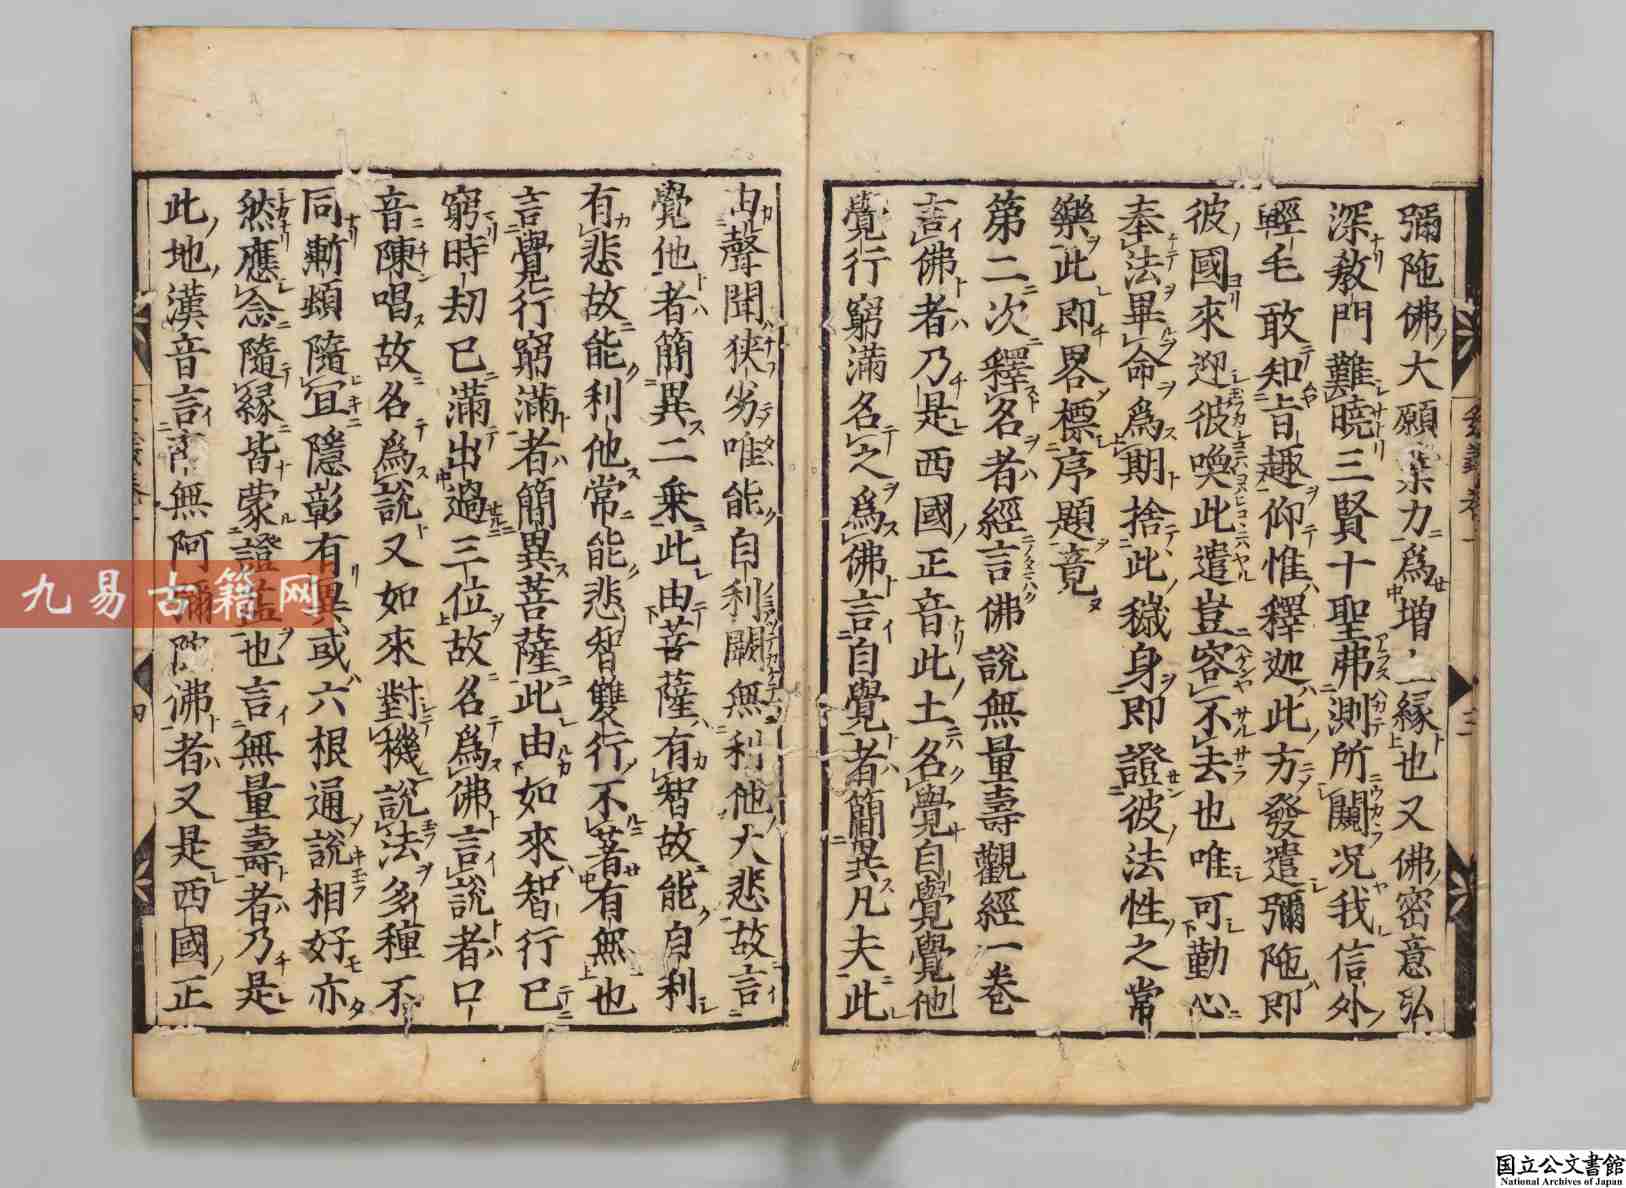 彌陁佛大願業力爲增上縁也又佛密意弘
深敎門難曉三賢十聖弗測所闚况我信外
輕毛敢知旨趣仰惟釋迦此方發遣彌陁即
彼國來迎彼喚此遣豈容不去也唯可勤心
奉法畢命爲期捨此穢身即證彼法性之常
樂此即畧標序題竟
第二次釋名者經言佛說無量壽觀經一卷
言佛者乃是西國正音此土名覺自覺覺他
覺行窮滿名之爲佛言自覺者簡異凡夫此
由聲聞狹劣唯能自利闕無利他大悲故言
覺他者簡異二乗此由菩薩有智故能自利
有悲故能利他常能悲智雙行不著有無也
言覺行窮滿者簡異菩薩此由如來智行已
窮時劫已滿出過三位故名爲佛言說者口
音陳唱故名爲說又如來對機說法多種不
同漸頓隨冝隱彰有異或六根通說相好亦
然應念隨縁皆蒙證益也言無量壽者乃是
此地漢音言南無阿彌陁佛者又是西國正
九易古籍网
国立公文書館
National Archives of Japan